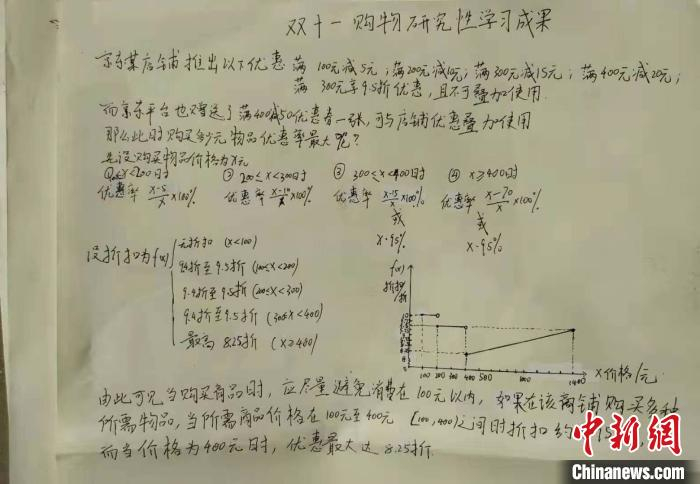 双十一购物研究性学习成果
京东某店铺推出以下优惠 满100元减5元；满200元减10元；满300元减15元；满400元减20元；
满300元享9.5折优惠，且不可叠加使用.
而京东平台也赠送了满400减50优惠券一张，可与店铺优惠叠加使用
那么此时购买多少元物品优惠率最大呢？
先设购买物品价格为x元
x<200时 ② 200≤x<300时 ③ 300≤x<400时 ④ x≥400时
优惠率 x-5/x ×100% 优惠率 x-10/x ×100% 优惠率 x-15/x ×100% 优惠率 x-70/x ×100%
或 或
x·95% x·95%
设折扣为f(x)
无折扣 (x<100)
9.5折 (100≤x<200)
9.4折至9.5折 (200≤x<300)
9.4折至9.5折 (300≤x<400)
最高 8.25折 (x≥400)
f(x)
折扣/折
100 200 300 400 500 1400
x价格/元
由此可见当购买商品时，应尽量避免消费在100元以内，如果在该商铺购买多种
所需物品，当所需商品价格在100元至400元 [100,400)之间时折扣约
而当价格为400元时，优惠最大达8.25折.
中新网
Chinanews.com